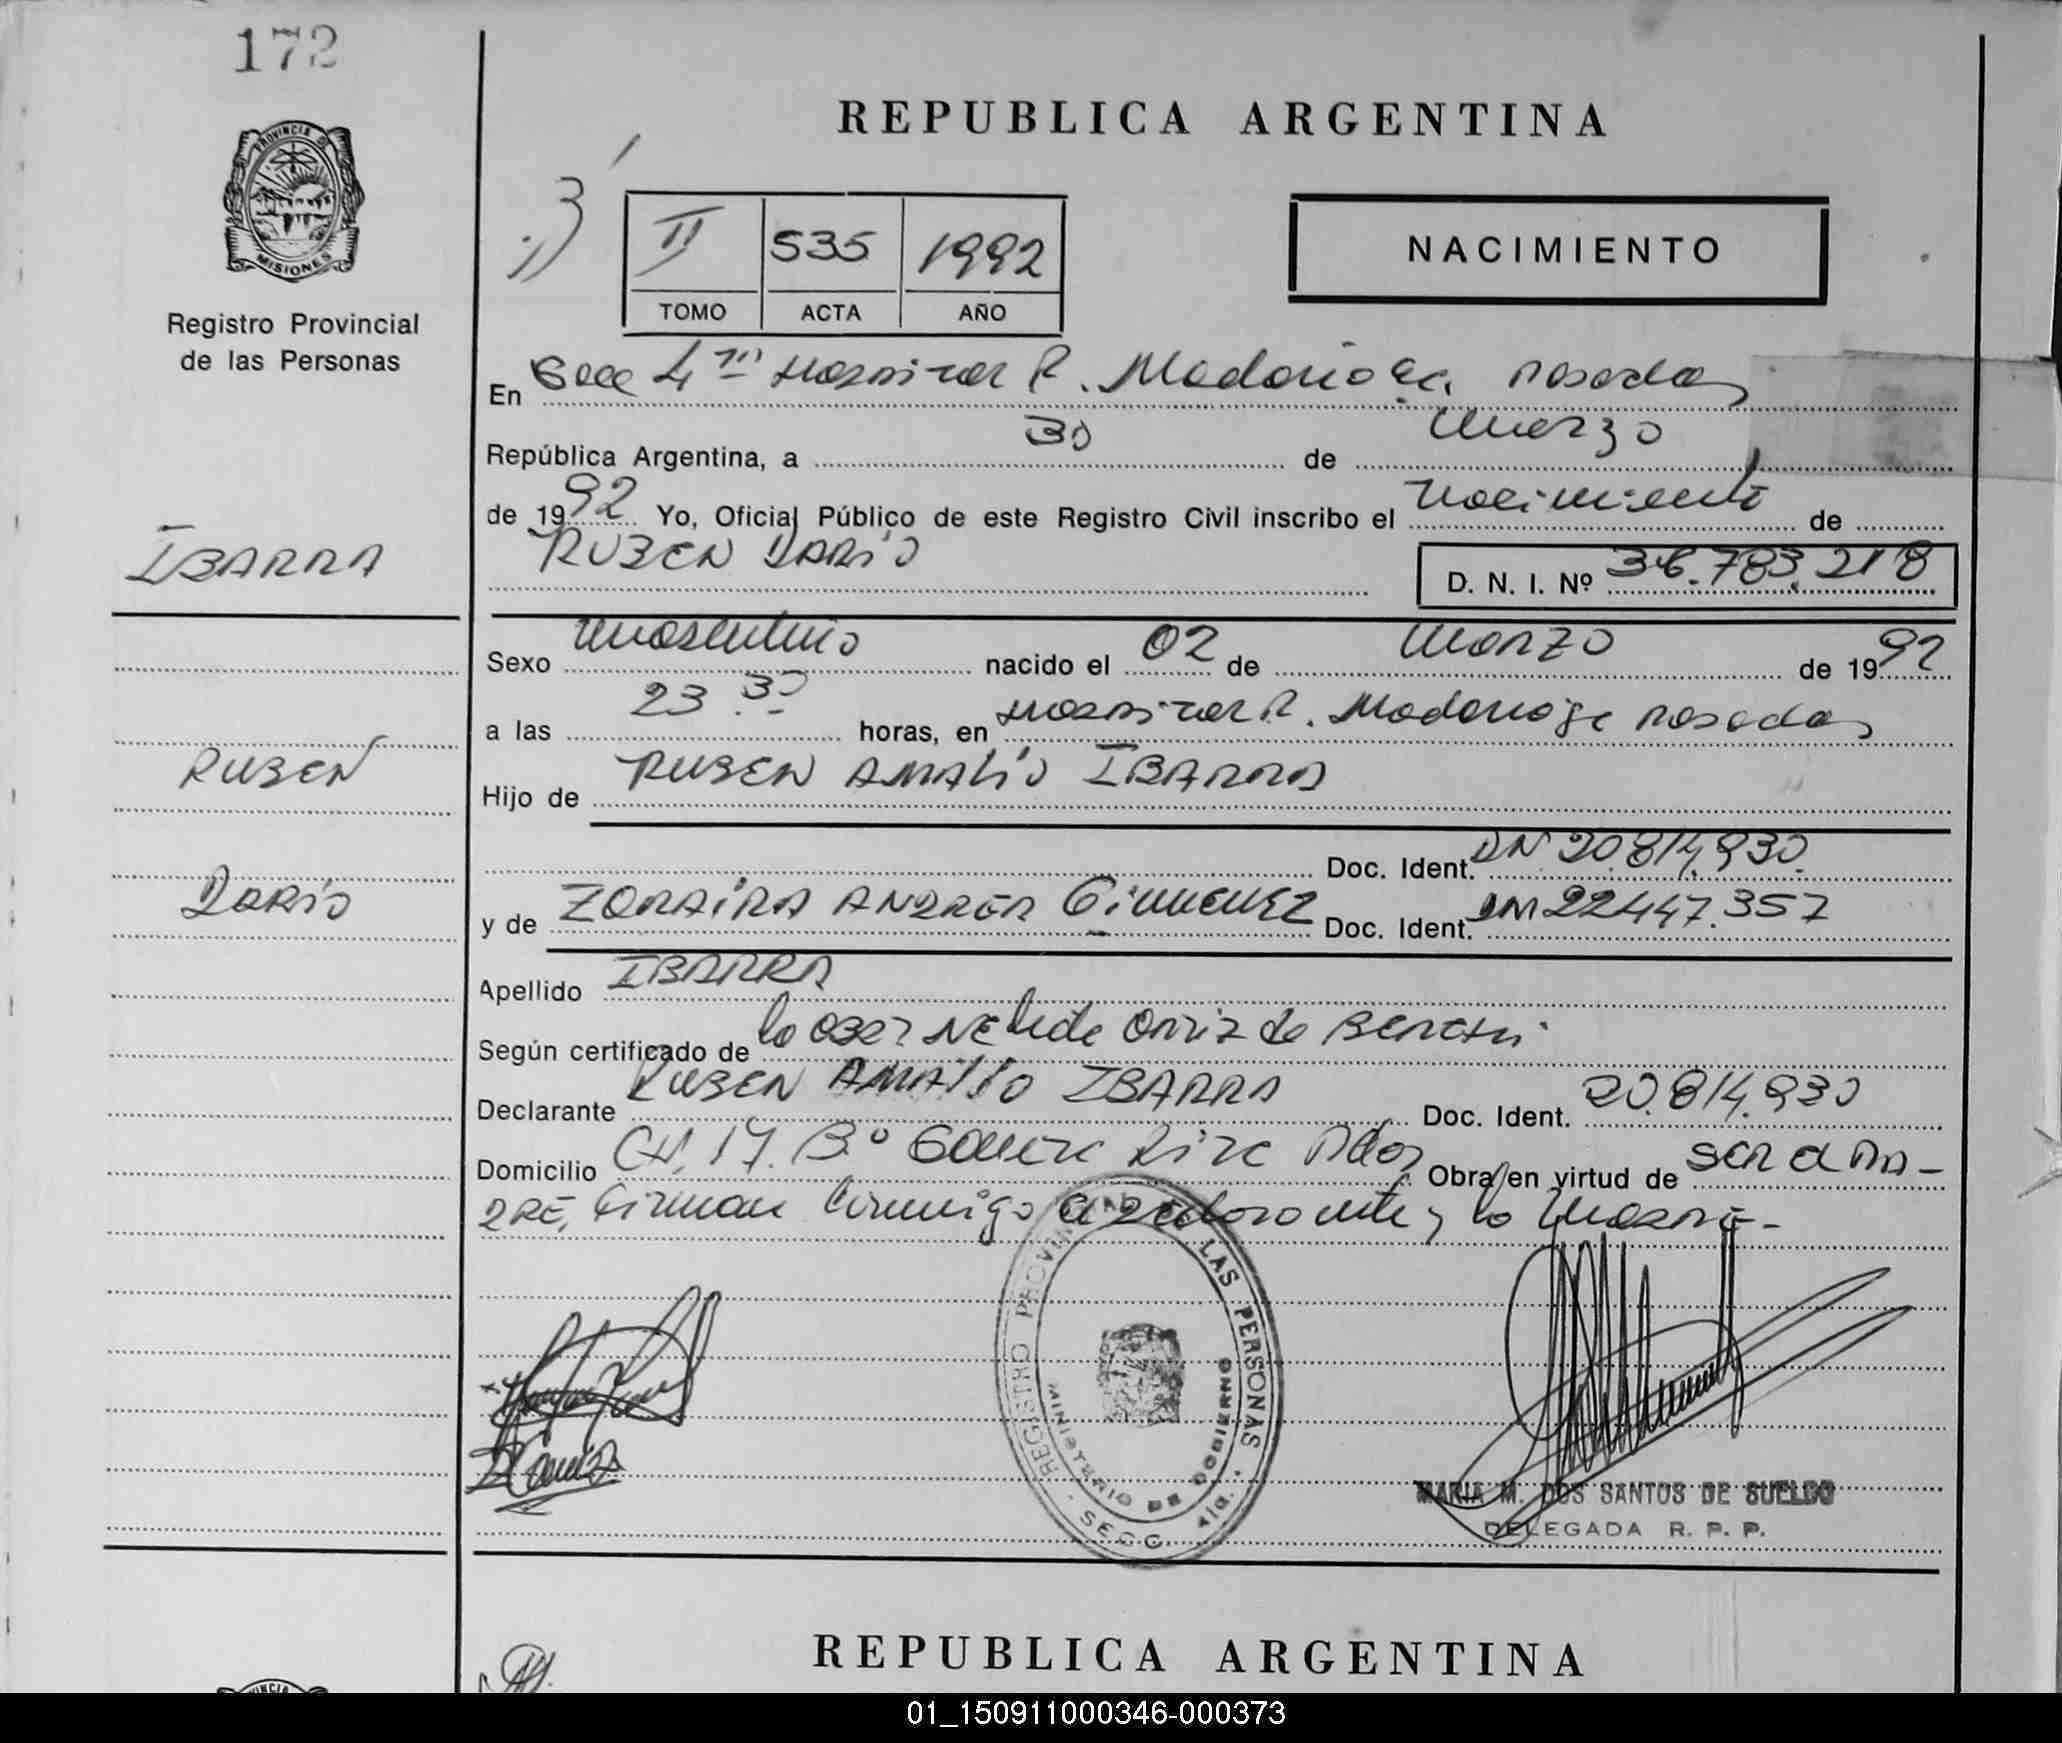 172
REPUBLICA ARGENTINA
PROVINCIA DE
MISIONES
Registro Provincial
de las Personas
II 535 1992
TOMO ACTA AÑO
NACIMIENTO
En Secc 4ta Hospital R. Madariaga Posadas
República Argentina, a 30 de Marzo
de 1992 Yo, Oficial Público de este Registro Civil inscribo el nacimiento de
IBARRA
RUBEN DARIO D. N. I. Nº 36.783.218
Sexo Masculino nacido el 02 de Marzo de 1992
a las 23.30 horas, en Hospital R. Madariaga Posadas
RUBEN
Hijo de RUBEN AMALIO IBARRA
Doc. Ident. DN 20.814.930
DARIO
y de ZORAIRA ANDREA Gimenez Doc. Ident. DNI 22447.357
Apellido IBARRA
Según certificado de la OBST NElida Ortiz de
Declarante RUBEN AMALIO IBARRA Doc. Ident. 20.814.930
Domicilio CH. 17. Bº Obra en virtud de SER el PA-
DRE, Firman Conmigo el declarante y la Madre-
REGISTRO PROVINCIAL DE LAS PERSONAS
MINISTERIO DE GOBIERNO
SECC. 4ta.
MARIA M. DOS SANTOS DE SUELDO
DELEGADA R. P. P.
REPUBLICA ARGENTINA
01_150911000346-000373